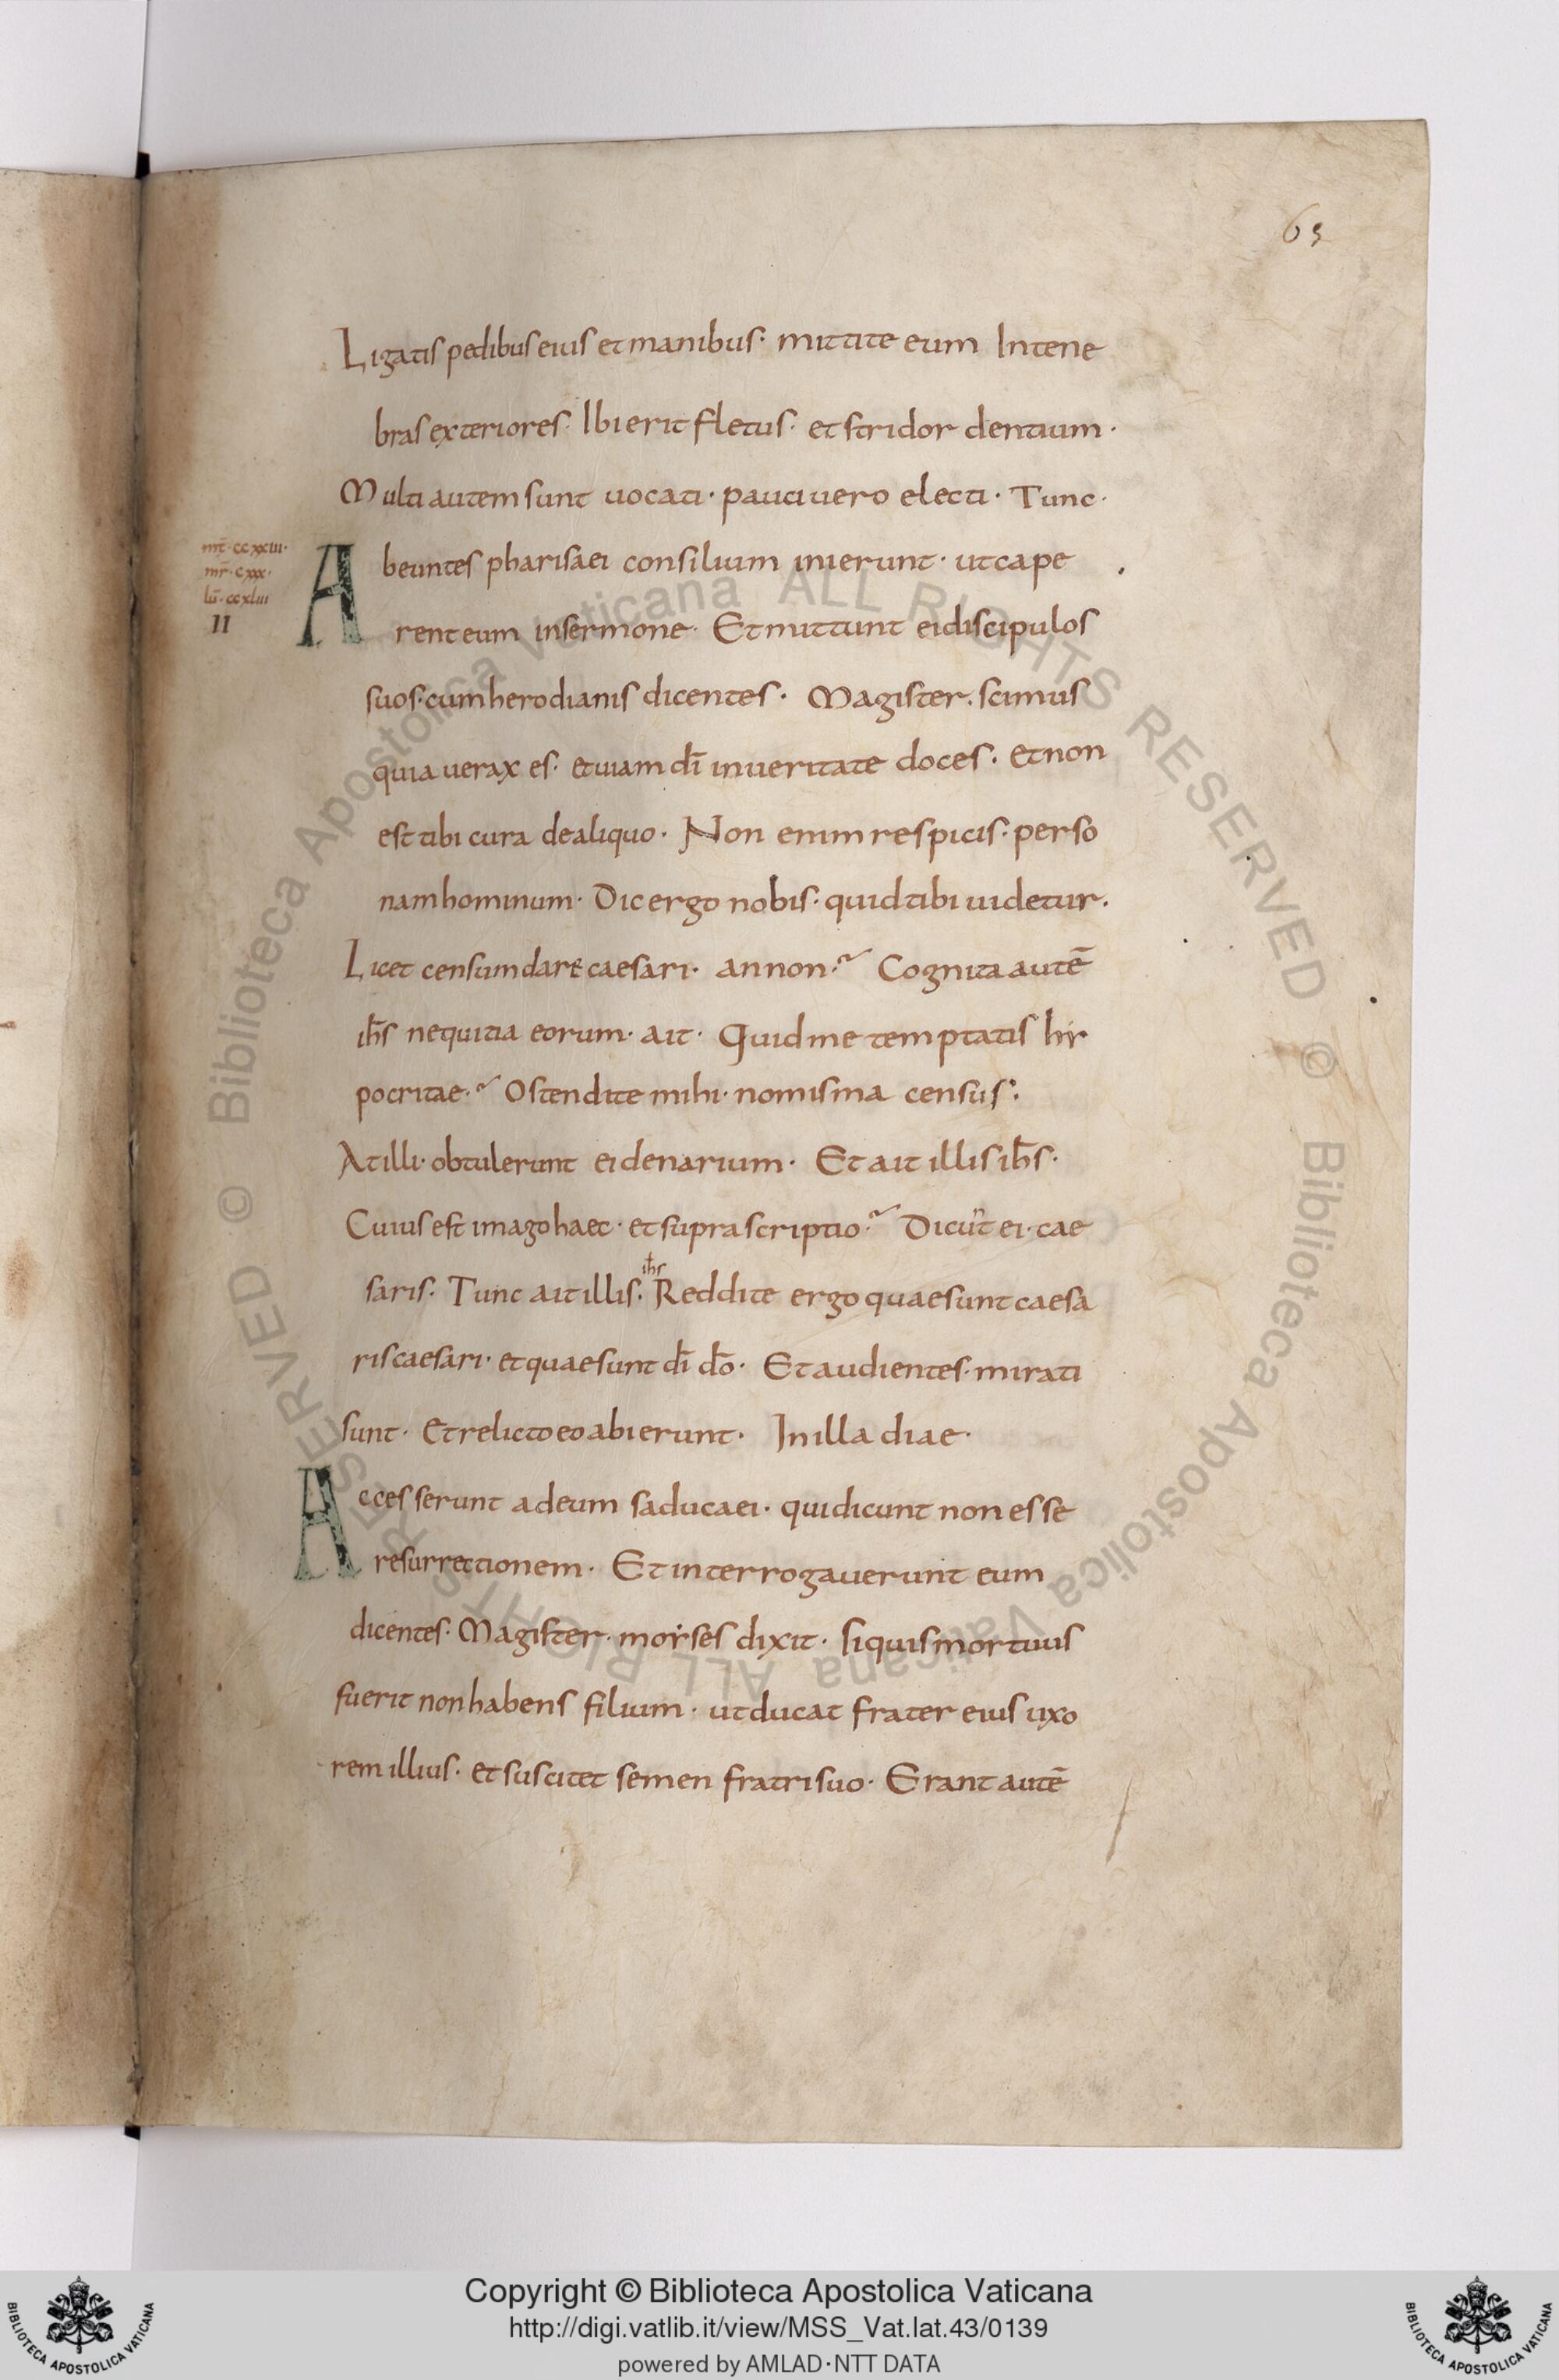 65
Ligatis pedibus eius et manibus· mittite eum Intene
bras exteriores· Ibi erit fletus· et stridor dentium·
Multi autem sunt uocati· pauci uero electi· Tunc·
mt̄·ccxxiii·
mr̄·cxxx·
lū·ccxliii
II
Abeuntes pharisaei consilium inierunt· ut cape
rent eum in sermone· Et mittunt ei discipulos
suos· cum herodianis dicentes· Magister· scimus
quia uerax es· et uiam dī in ueritate doces· et non
est tibi cura de aliquo· Non enim respicis· perso
nam hominum· Dic ergo nobis· quid tibi uidetur·
Licet censum dare caesari· an non·? Cognita autē
ih̄s nequitia eorum· ait· Quid me temptatis hẏ
pocritae·? Ostendite mihi· nomisma census·
At illi· obtulerunt ei denarium· Et ait illis ih̄s·
Cuius est imago haec· et suprascriptio·? Dicūt ei· cae
ih̄s
saris· Tunc ait illis· Reddite ergo quae sunt caesa
ris caesari· et quae sunt dī dō· Et audientes· mirati
sunt· Et relicto eo abierunt· In illa diae·
Accesserunt ad eum saducaei· qui dicunt non esse
resurrectionem· Et interrogauerunt eum
dicentes· Magister· moẏses dixit· si quis mortuus
fuerit non habens filium· ut ducat frater eius uxo
rem illius· et suscitet semen fratri suo· Erant autē
© Biblioteca Apostolica Vaticana ALL RIGHTS RESERVED
© Biblioteca Apostolica Vaticana ALL RIGHTS RESERVED
BIBLIOTECA APOSTOLICA VATICANA
Copyright © Biblioteca Apostolica Vaticana
http://digi.vatlib.it/view/MSS_Vat.lat.43/0139
powered by AMLAD·NTT DATA
BIBLIOTECA APOSTOLICA VATICANA